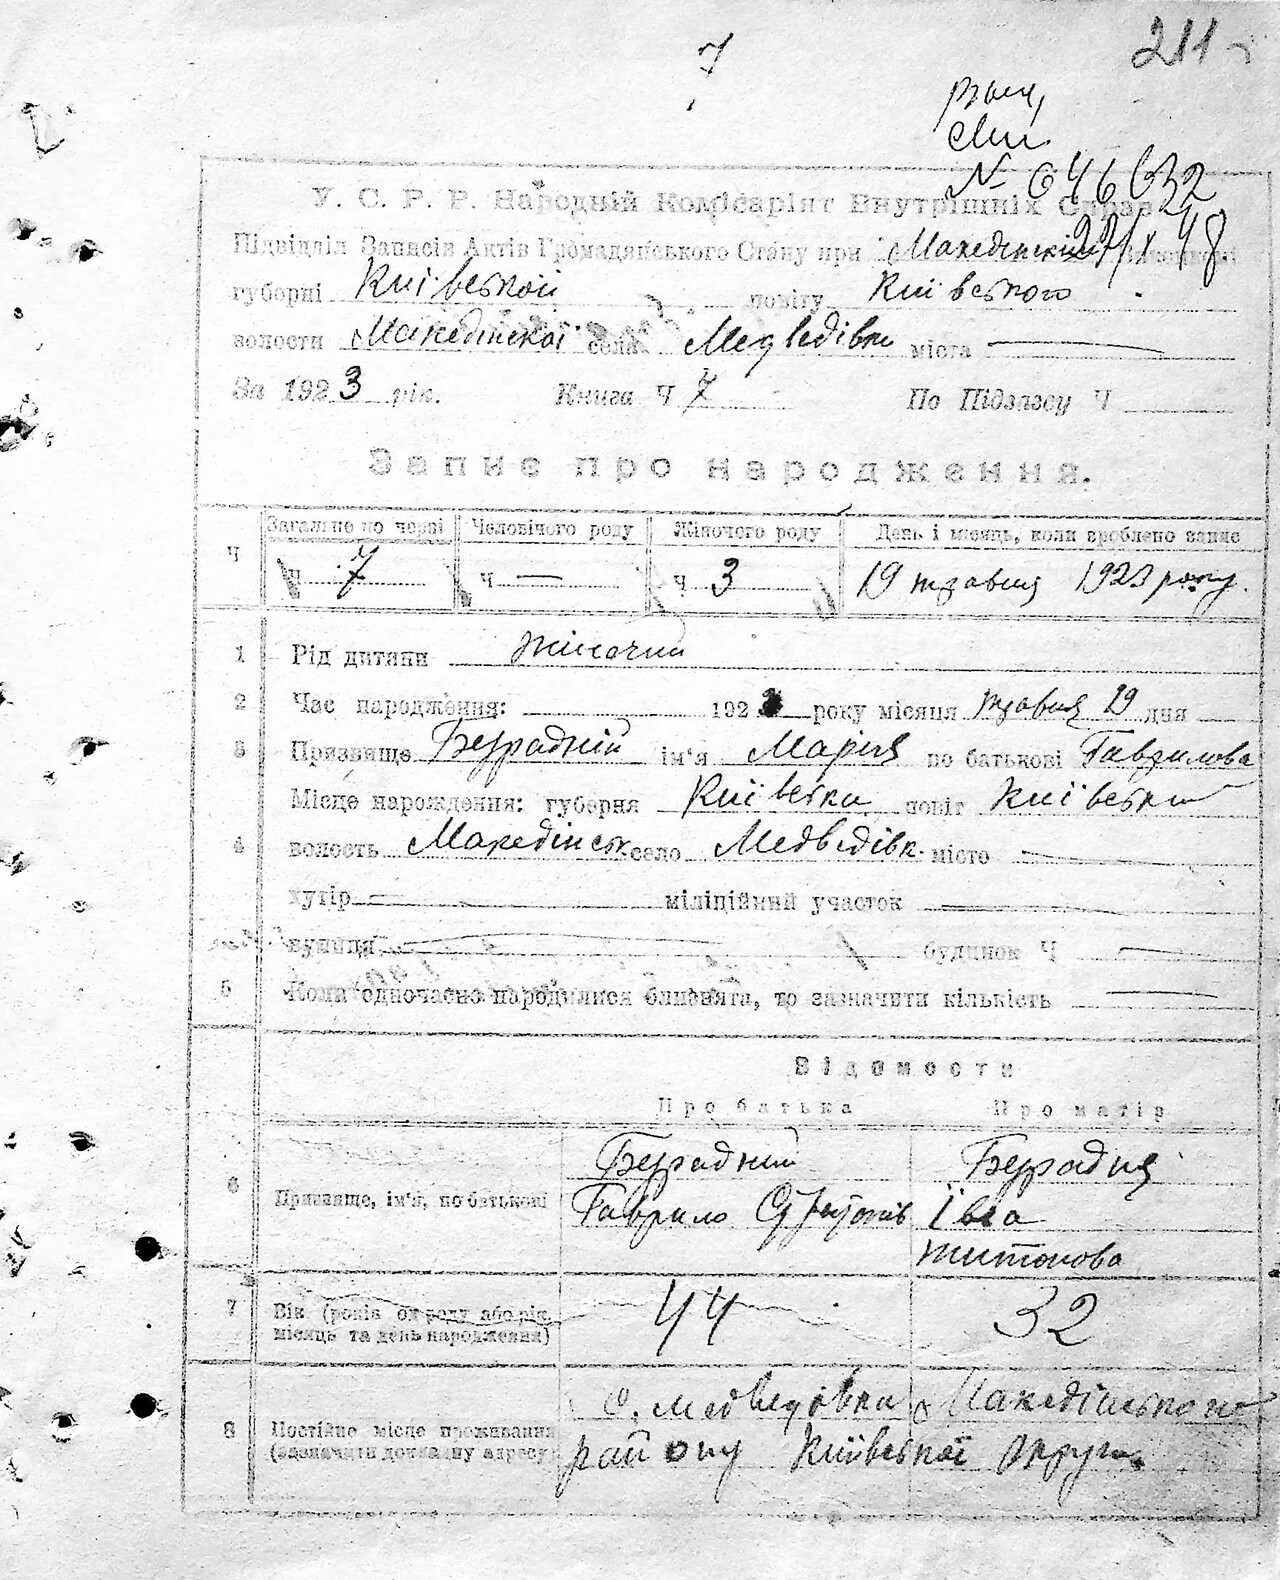 211
7
№ 046632
У. С. Р. Р. Народній Комісаріят Внутрішніх Справ
27/X 48
Підвідділ Записів Актів Громадянського Стану при Македінскій
губерні Київської повіту Київського
волости Македінскої села Медведівки міста —
За 1923 рік. Книга Ч 7 По Підзагсу Ч
Запис про народження.
Ч Загальне по черзі Человічого роду Жіночого роду День і місяць, коли зроблено запис
ч 7 ч — ч 3 19 травня 1923 року.
1 Рід дитини жіночий
2 Час народження: 1923 року місяця травня 19 дня
3 Призвище Безрадній ім'я Марія по батькові Гаврилова
Місце нарождення: губерня Київська повіт Київський
4 волость Македінськ село Медведівк. місто —
хутір — міліційний участок —
вулиця — будинок Ч —
5 Коли одночасно народилися близнята, то зазначити кількість —
Відомости
Про батька Про матір
6 Призвище, ім'я, по батькові
Безрадний Безрадня
Гаврило Ївга
Титонова
7 Вік (років од роду або рік, місяць та день народження) 44 32
8 Постійне місце проживання (зазначити докладну адресу)
С. Медведовка Македінського
району Київської округи.